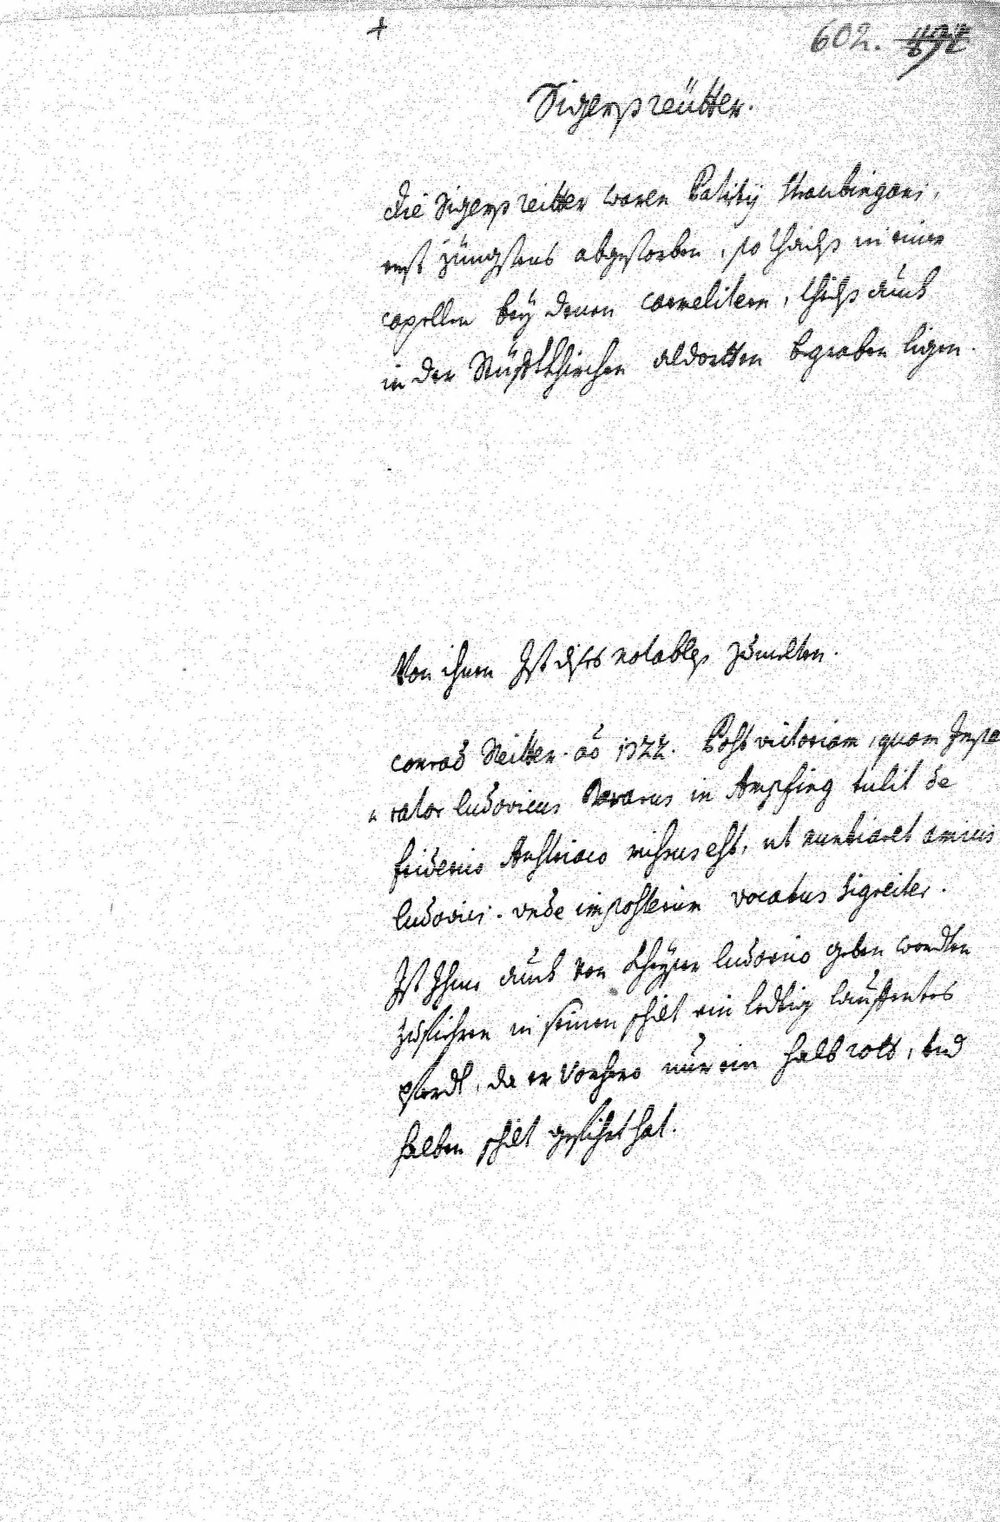 + 602.
Sigersreütter.
Die Sigersreitter waren Patritij Straubingani,
erst jüngstens abgestorben, so theils in einer
capellen bey denen carmelitern, theils auch
in der Stüfftkhirchen aldortten begraben ligen.
Von ihnen Ist dises notables zumelten.
conrad Reitter ao 1322. Post victoriam, quam Impe
rator ludovicus Bavarus in Ampfing tulit de
friderico Austriaco missus est, ut nuntiaret amicis
ludovici. unde imposterum vocatus sigreiter.
Ist Ihme auch von Kheyser ludovico geben worden
zuführen in seinen schilt ein ledtig lauffentes
pferdt, da er vorhero nur ein halb rott, und
halben schilt geführt hat.